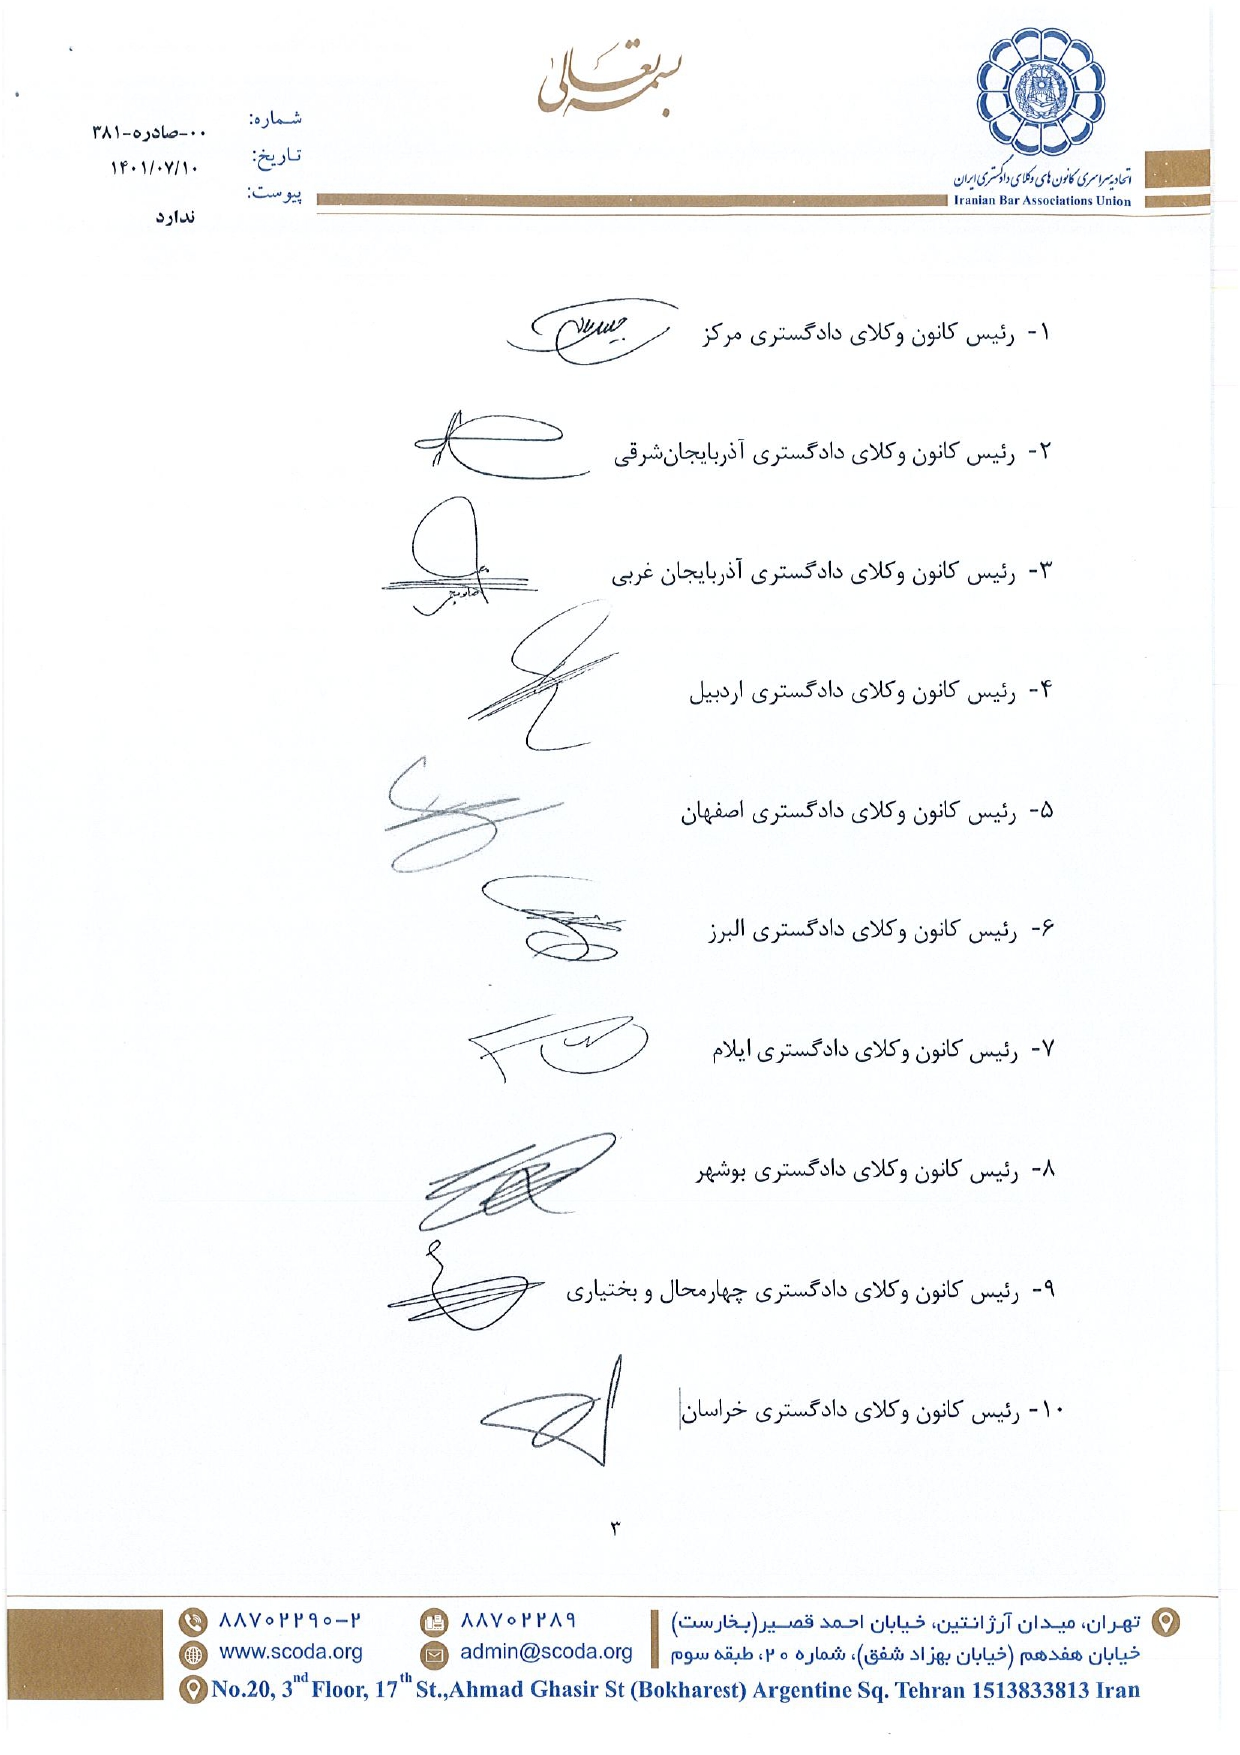 بسمه تعالی
شماره: ۰۰-صادره-۳۸۱
تاریخ: ۱۴۰۱/۰۷/۱۰
پیوست: ندارد
اتحادیه سراسری کانون های وکلای دادگستری ایران
Iranian Bar Associations Union
۱- رئیس کانون وکلای دادگستری مرکز
۲- رئیس کانون وکلای دادگستری آذربایجان‌شرقی
۳- رئیس کانون وکلای دادگستری آذربایجان غربی
۴- رئیس کانون وکلای دادگستری اردبیل
۵- رئیس کانون وکلای دادگستری اصفهان
۶- رئیس کانون وکلای دادگستری البرز
۷- رئیس کانون وکلای دادگستری ایلام
۸- رئیس کانون وکلای دادگستری بوشهر
۹- رئیس کانون وکلای دادگستری چهارمحال و بختیاری
۱۰- رئیس کانون وکلای دادگستری خراسان
۳
تهران، میدان آرژانتین، خیابان احمد قصیر(بخارست)
خیابان هفدهم (خیابان بهزاد شفق)، شماره ۲۰، طبقه سوم
۸۸۷۰۲۲۸۹
admin@scoda.org
۸۸۷۰۲۲۹۰-۲
www.scoda.org
No.20, 3nd Floor, 17th St.,Ahmad Ghasir St (Bokharest) Argentine Sq. Tehran 1513833813 Iran